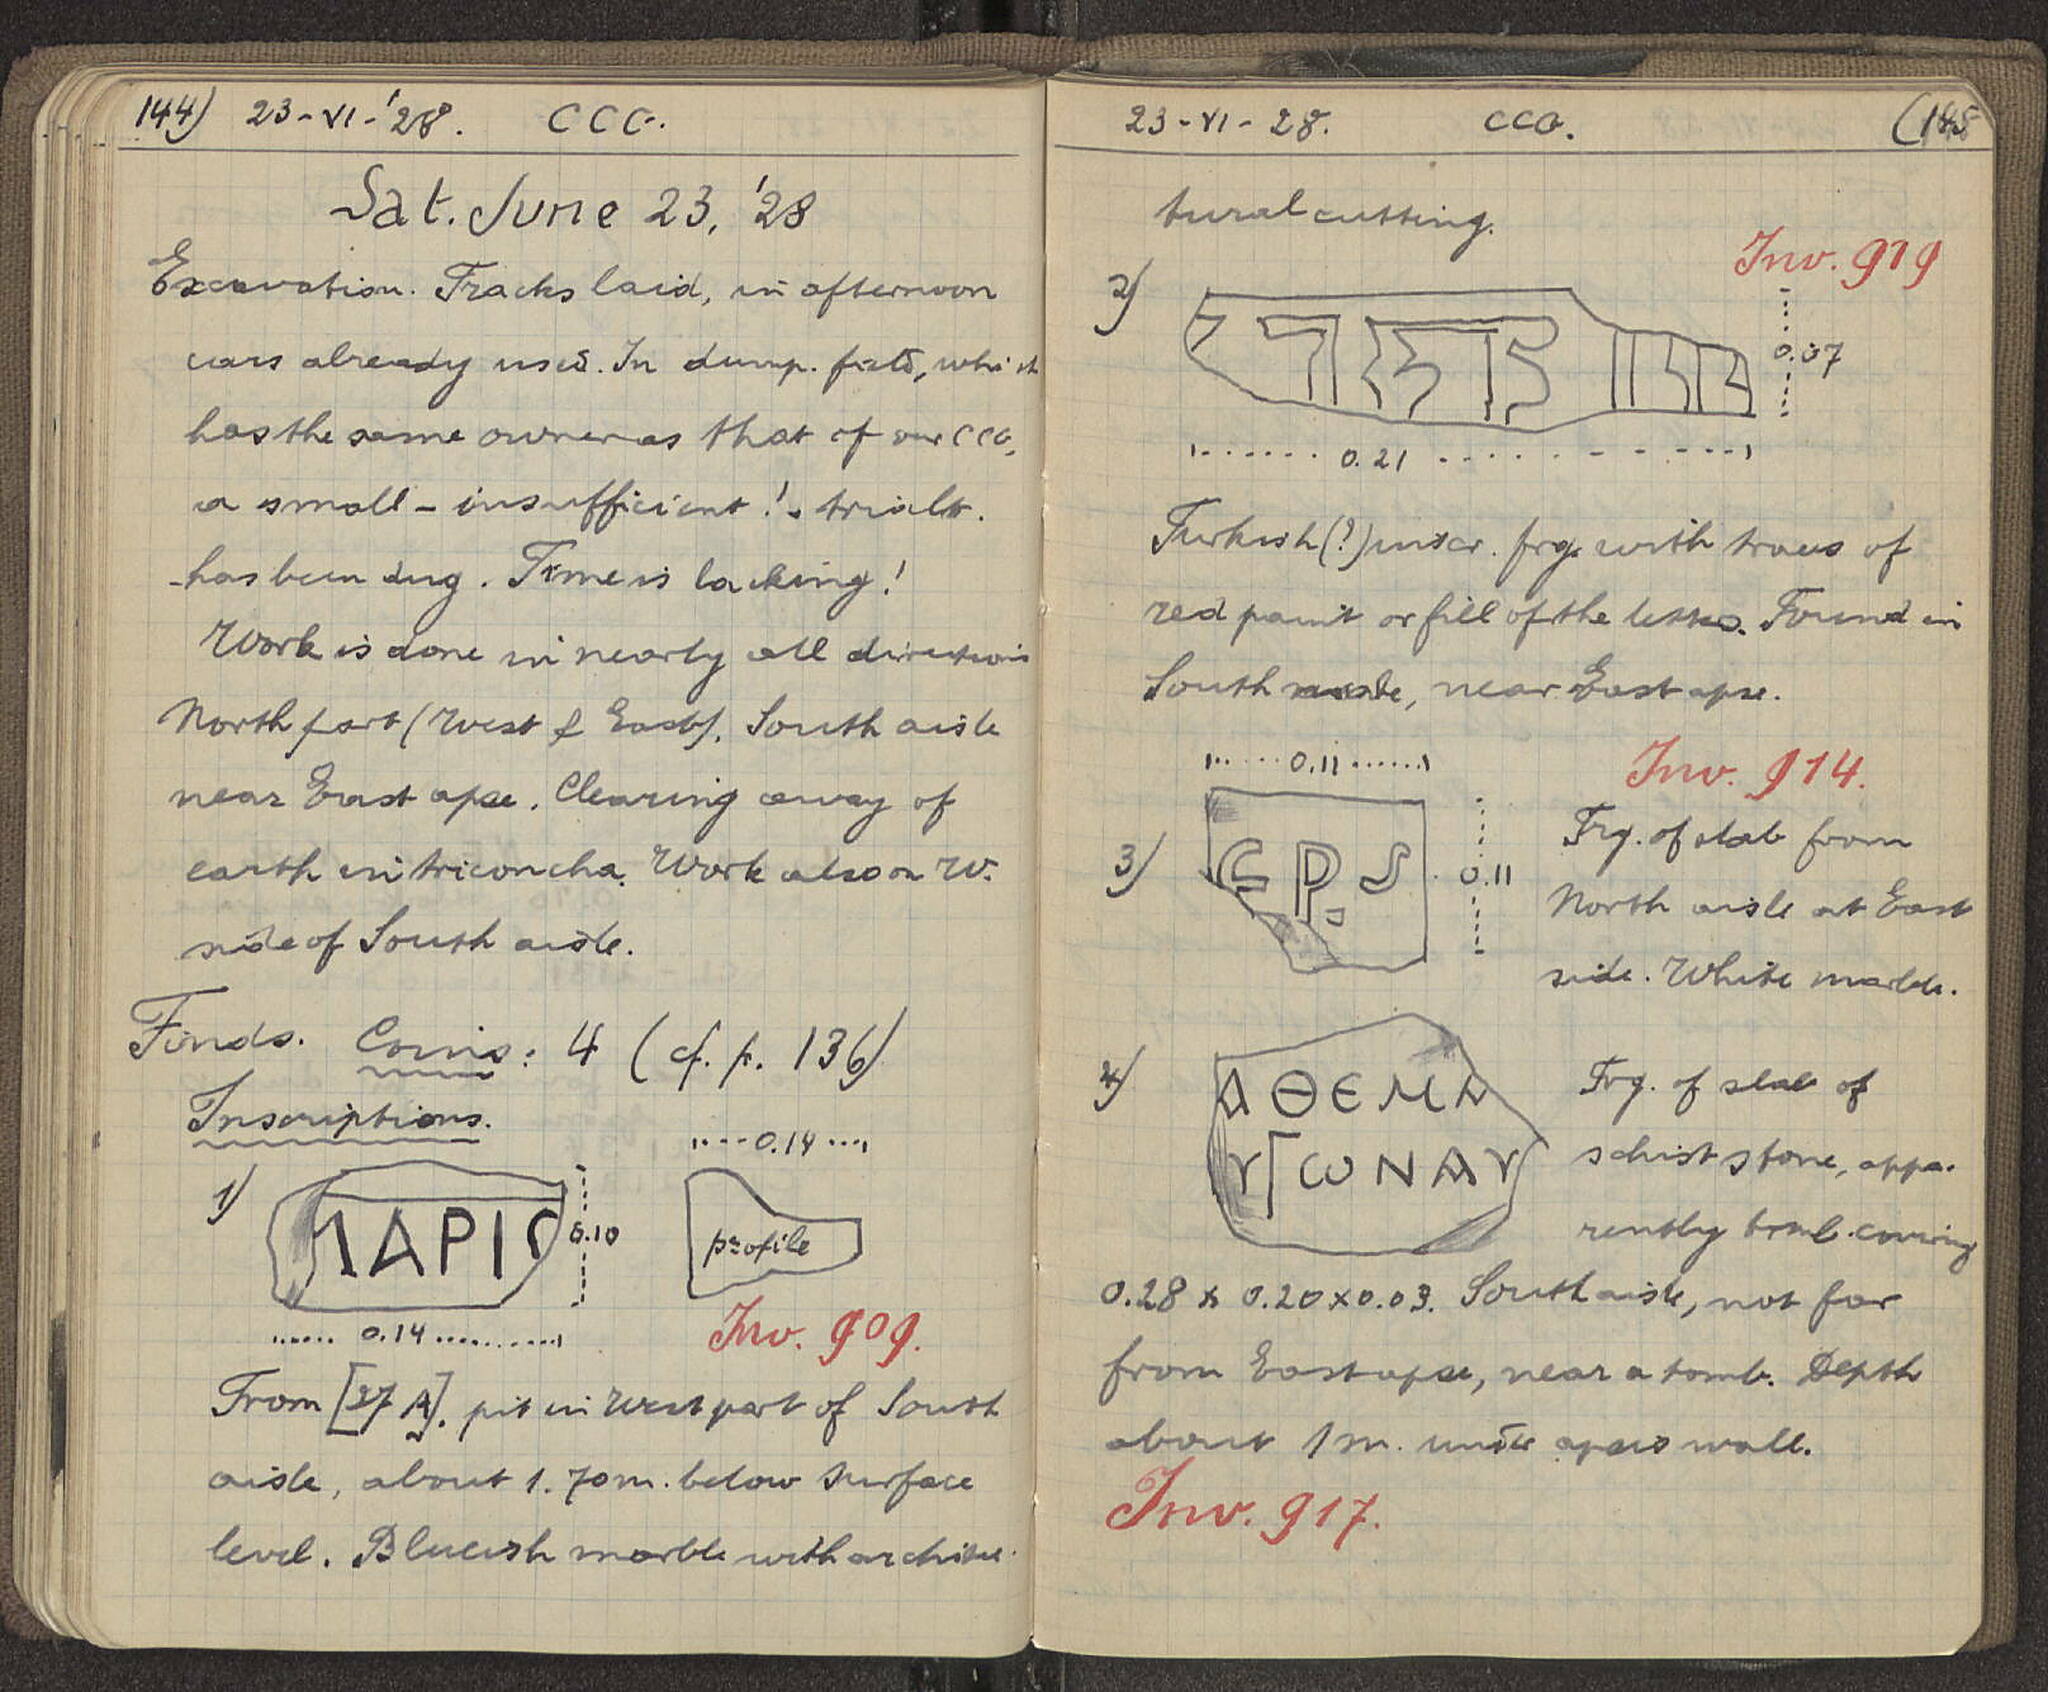 144) 23-VI-'28. CCG.
Sat. June 23, '28
Excavation. Tracks laid, in afternoon
cars already used. In dump. field, which
has the same owner as that of our CCG,
a small - insufficient! - trialtr.
has been dug. Time is lacking!
Work is done in nearly all directions
North part (West & East). South aisle
near East apse. Clearing away of
earth in triconcha. Work also on W.
side of South aisle.
Finds. Coins: 4 (cf. p. 136)
Inscriptions.
0.14
1) ΛΑΡΙΟ 0.10 profile
0.14 Inv. 909.
From [37 A], pit in West part of South
aisle, about 1.70 m. below surface
level. Blueish marble with architec
23-VI-28. CCG. (145
tural cutting.
Inv. 919
2) 0.07
0.21
Turkish (?) inscr. frg. with traces of
red paint or fill of the letters. Found in
South aisle, near East apse.
0.11 Inv. 914.
3) C P S 0.11 Frg. of slab from
North aisle at East
side. White marble.
4) ΑΘΕΜΑ Frg. of slab of
ΥΓωΝΑΥ schist stone, appa-
rently tomb-covering
0.28 x 0.20 x 0.03. South aisle, not far
from East apse, near a tomb. Depth
about 1 m. under apsis wall.
Inv. 917.